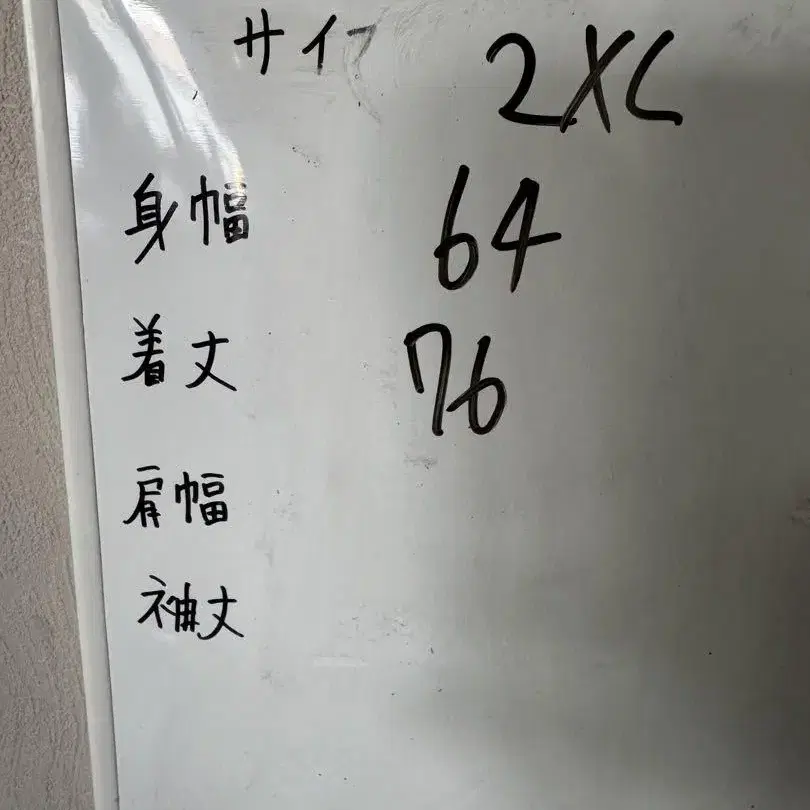 サイ 2XL
身幅 64
着丈 76
肩幅
袖丈